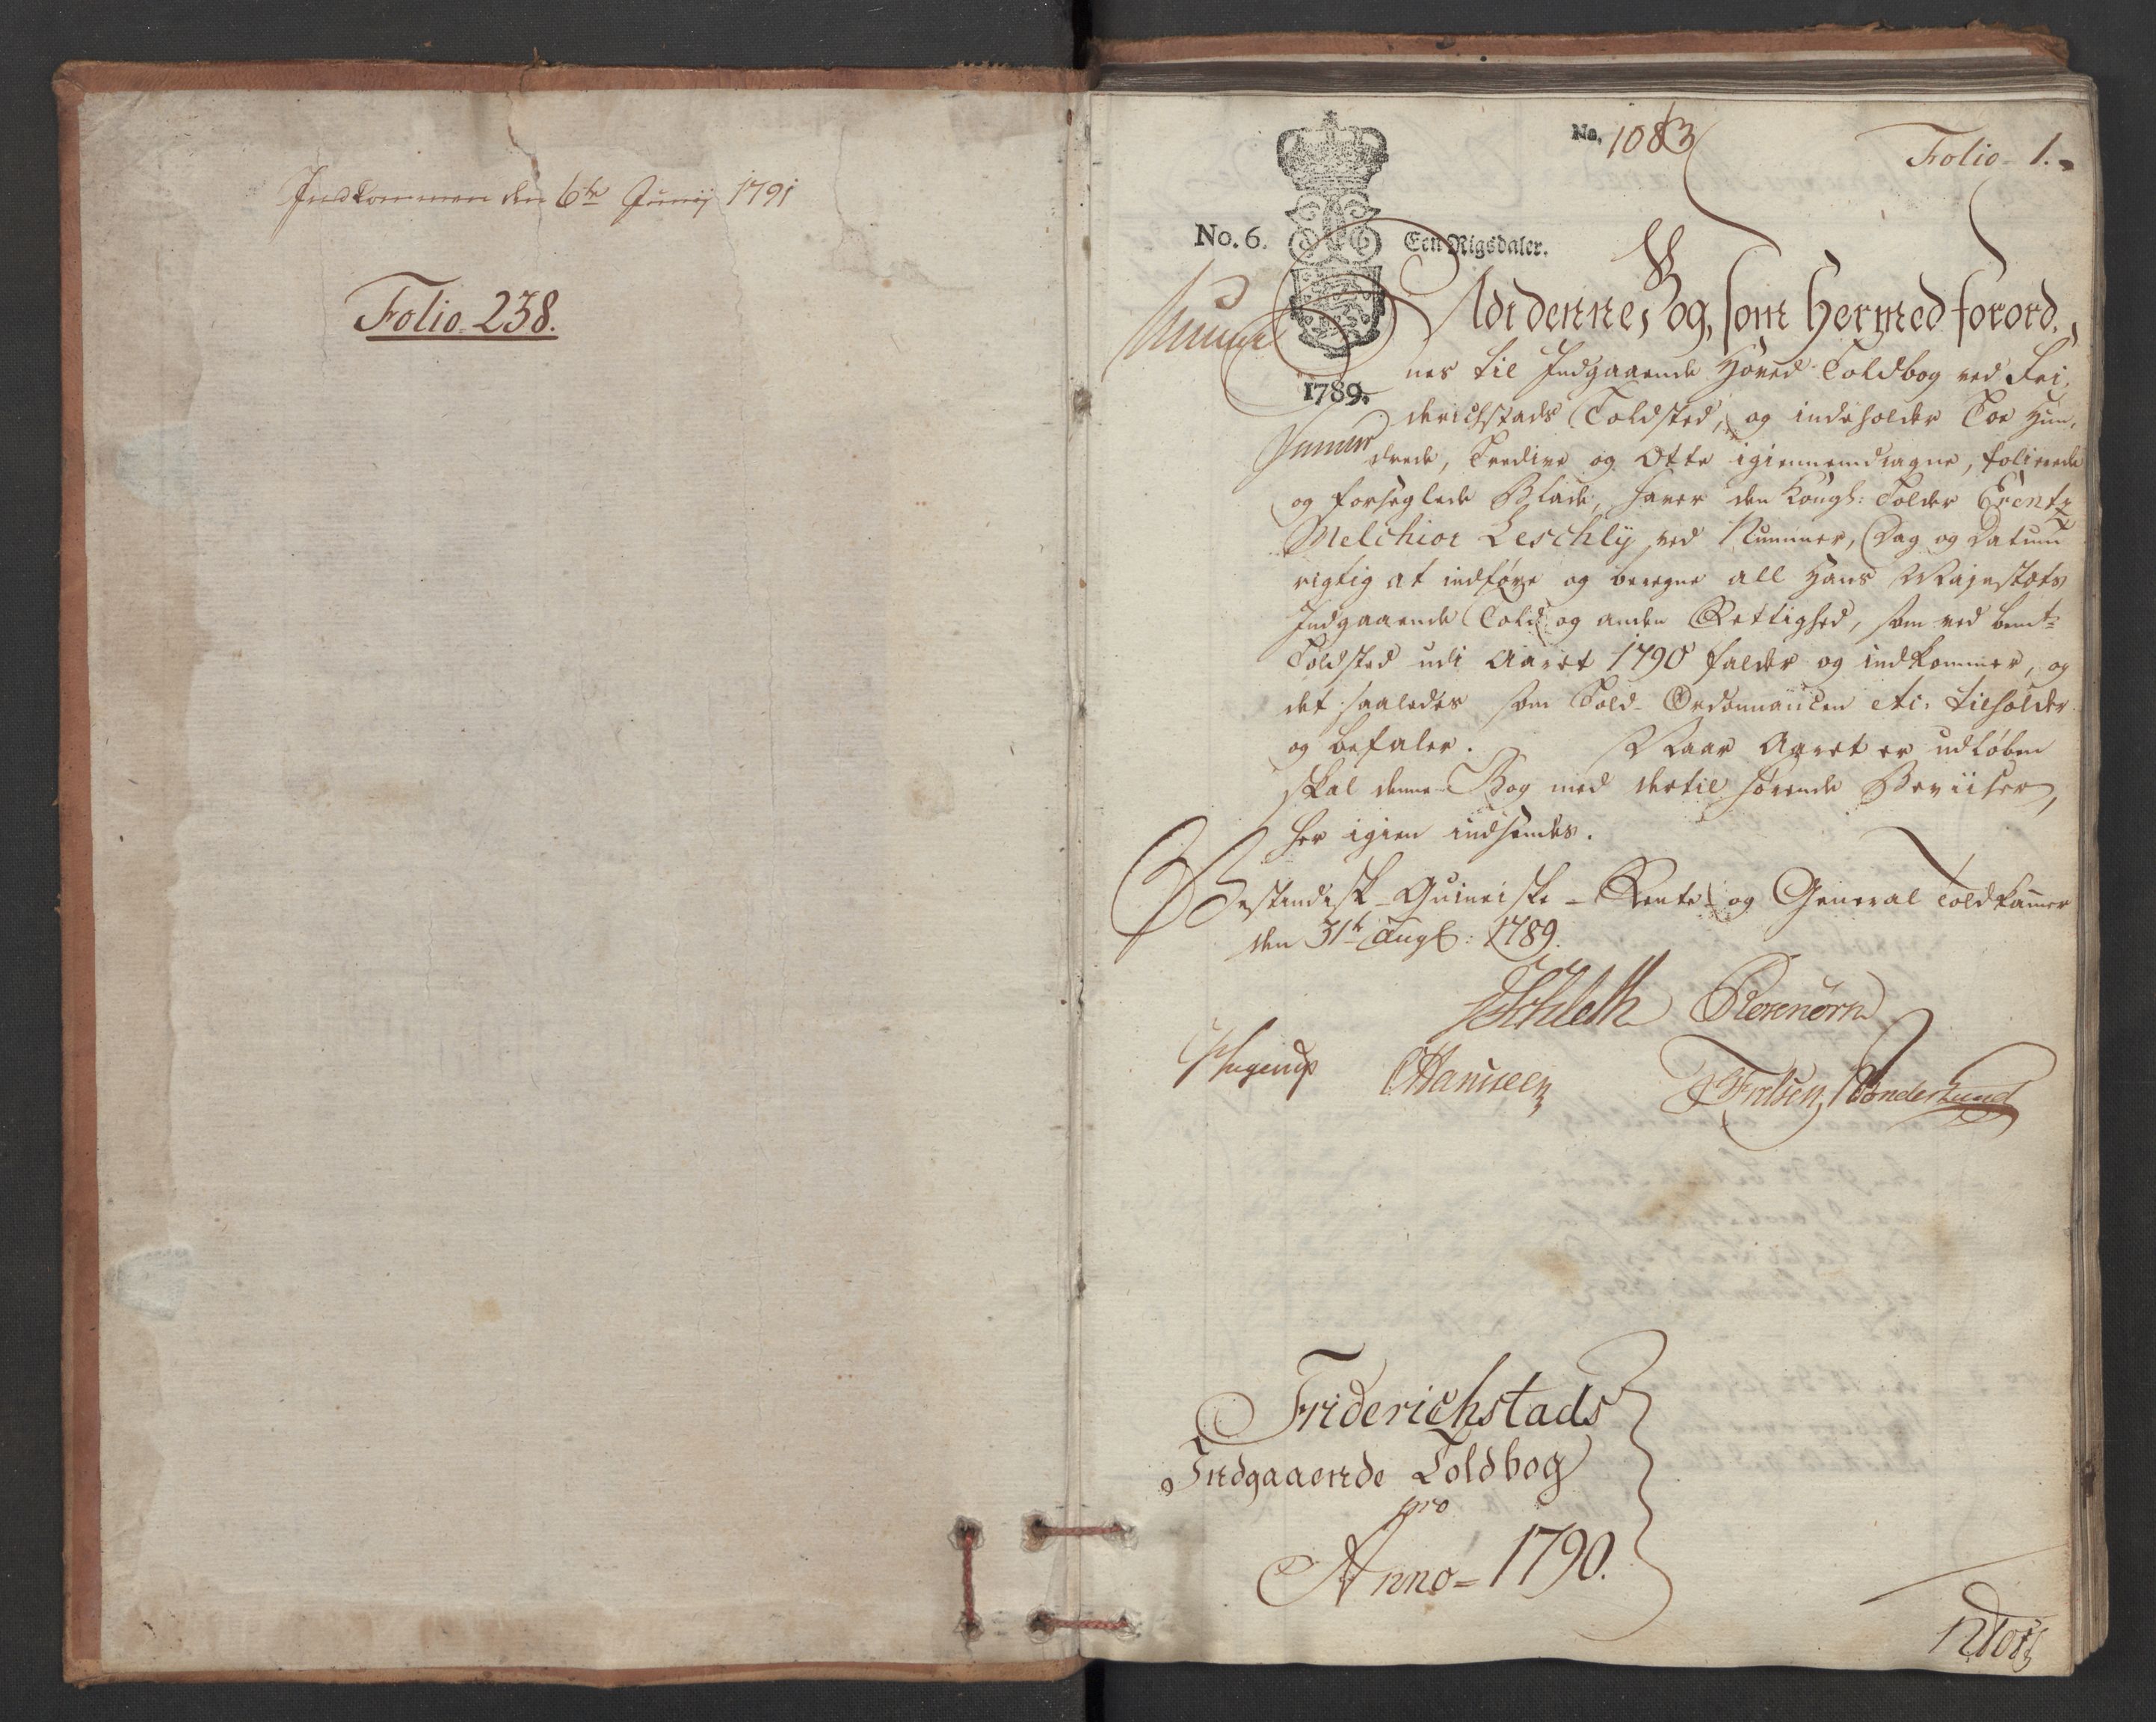 Indkommen den 6te Junij 1791
Folio 238.
No. 1083
Folio 1.
No. 6.
Een Rigsdaler.
1789.
Udi denne Bog, som hermed forord,
nes til Indgaaende Hoved Toldbog ved Fri,
derichstads Toldsted, og indeholder Toe Hun,
drede, Tredive og Otte igiennemdragne, folierede
og forseglede Blade, haver den Kongl: Tolder Erentz
Melchior Leschly ved Nummer, Dag og Datum
rigtig at indføre og beregne all Hans Majestæts
Indgaaende Told og anden Rettighed, som ved bemte
Toldsted udi Aaret 1790 falder og indkommer, og
det saaledes som Told-Ordonnancen etc: tilholder
og befaler. Naar Aaret er udløben
skal denne Bog med dertil hørende Beviiser,
her igien indsendes.
Vestindisk-Guineiske-Rente- og General Toldkammer
den 31te Augl: 1789.
Schleth Rosenörn
Hansen
Friderichstads
Indgaaende Toldbog
pro
Anno = 1790.